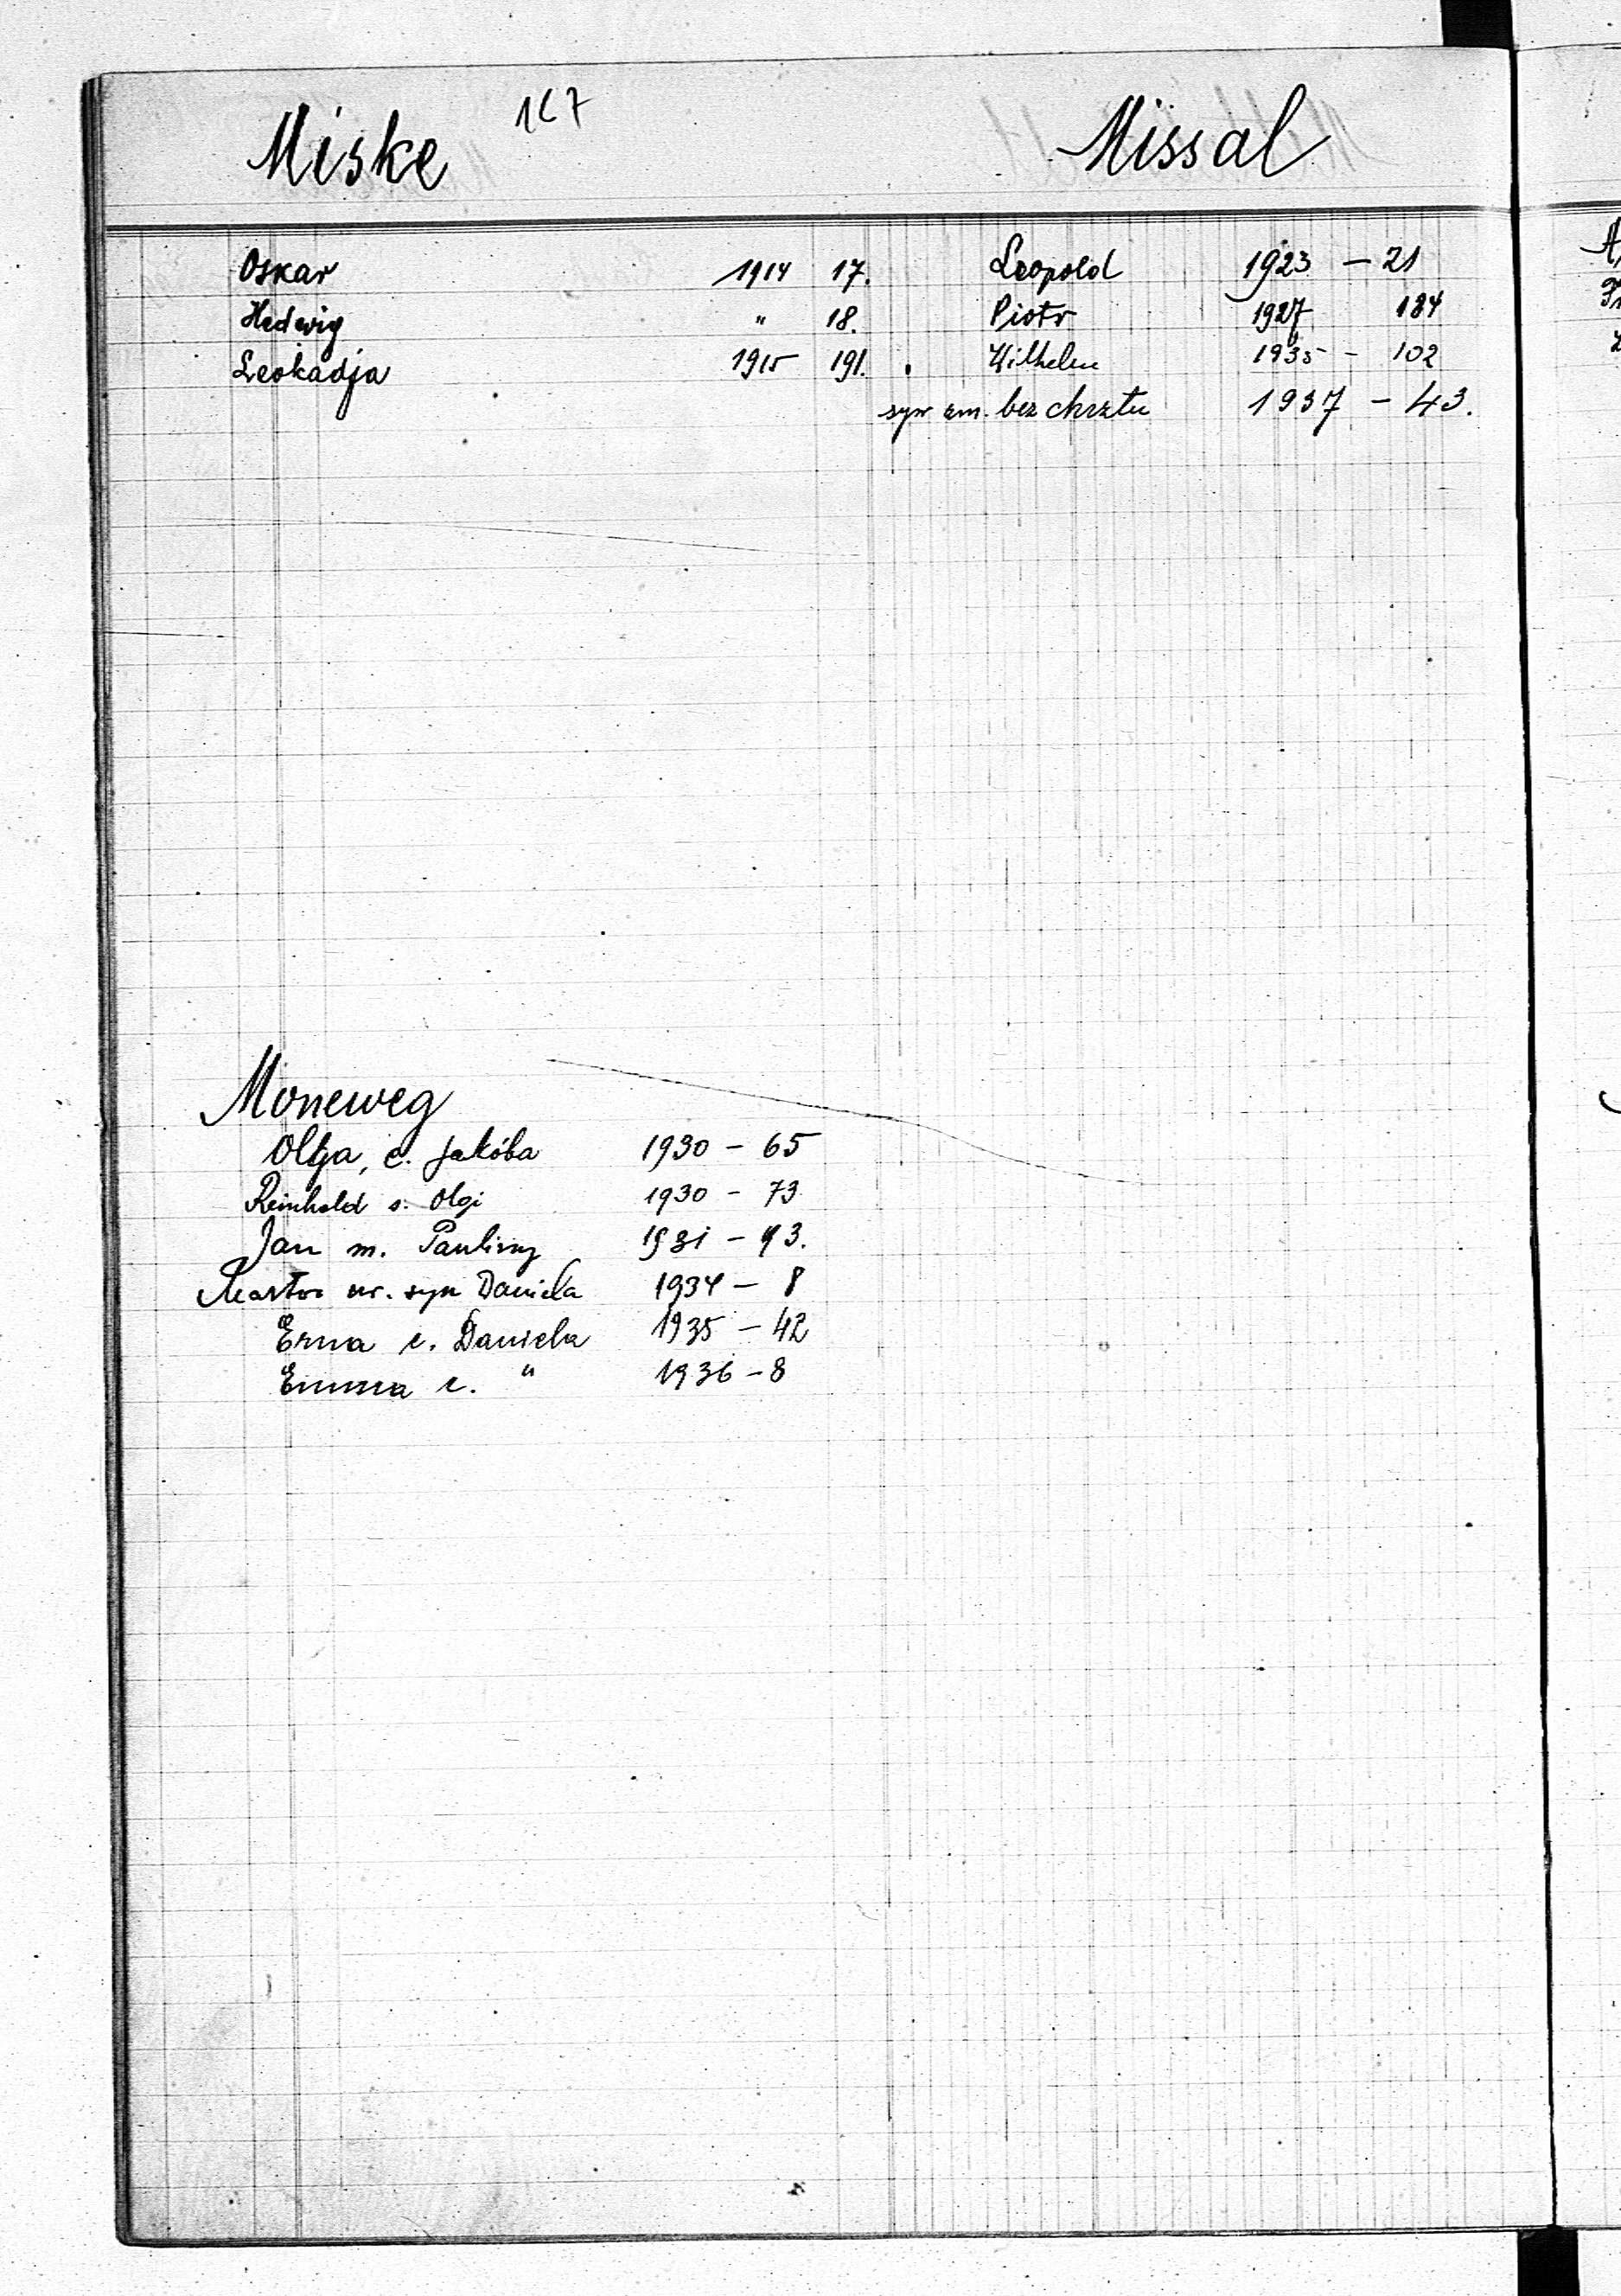 167
Miske
Oskar 1914 17.
Hedwig " 18.
Leokadja 1915 191.
Missal
Leopold 1923 - 21
Piotr 1927 184
Wilhelm 1935 - 102
syn zm. bez chrztu 1937 - 43.
Moneweg
Olga, c. Jakóba 1930 - 65
Reinhold s. Olgi 1930 - 73
Jan m. Pauliny 1931 - 93.
ur. syn Daniela 1934 - 8
Erna c. Daniela 1935 - 42
Emma c. " 1936 - 8